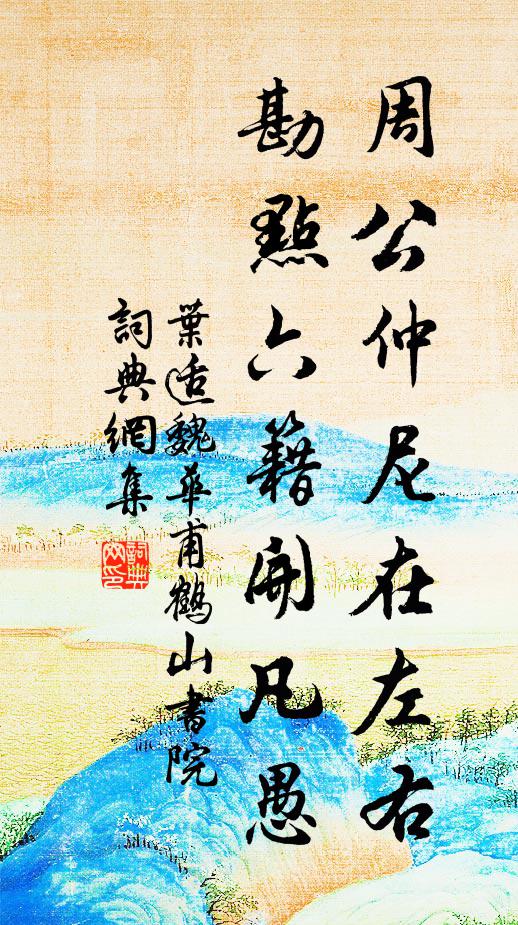 周公仲尼在左右
勘點六籍開凡愚
葉适魏華甫鶴山書院
詞典網集
詞典
网印